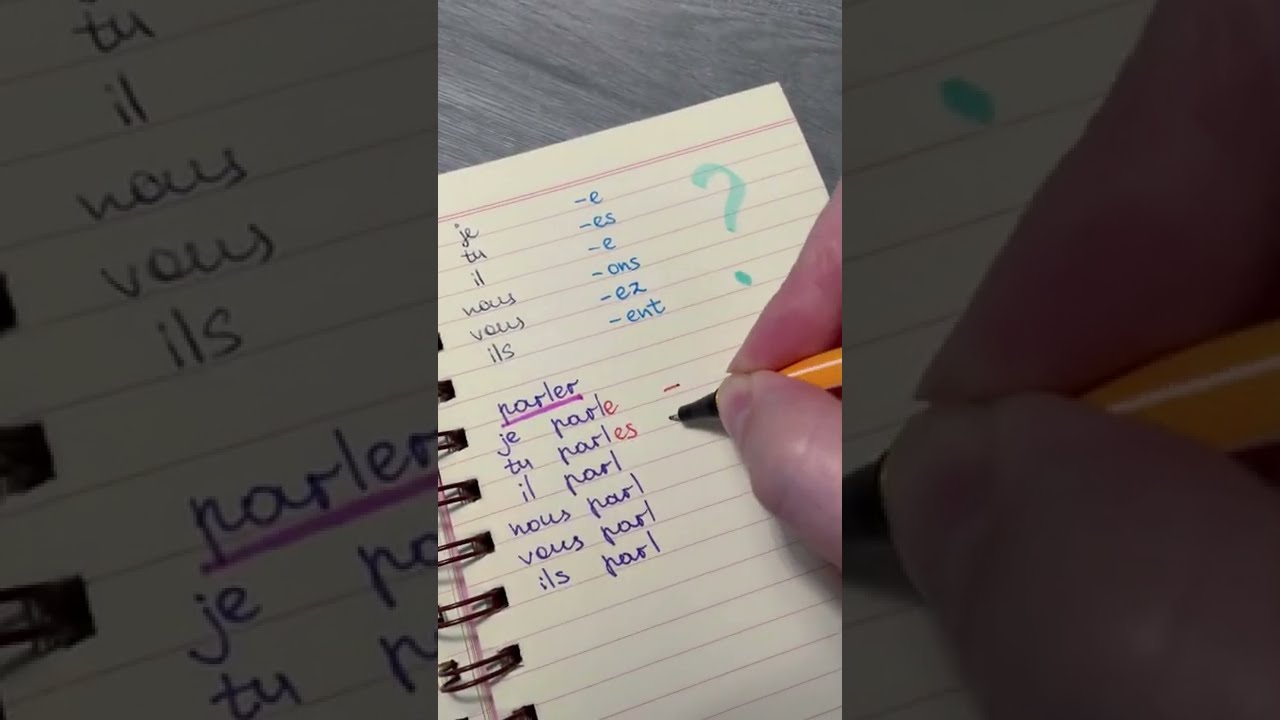 je -e
tu -es
il -e
nous -ons
vous -ez
ils -ent
?
parler
je parle -
tu parles
il parl
nous parl
vous parl
ils parl